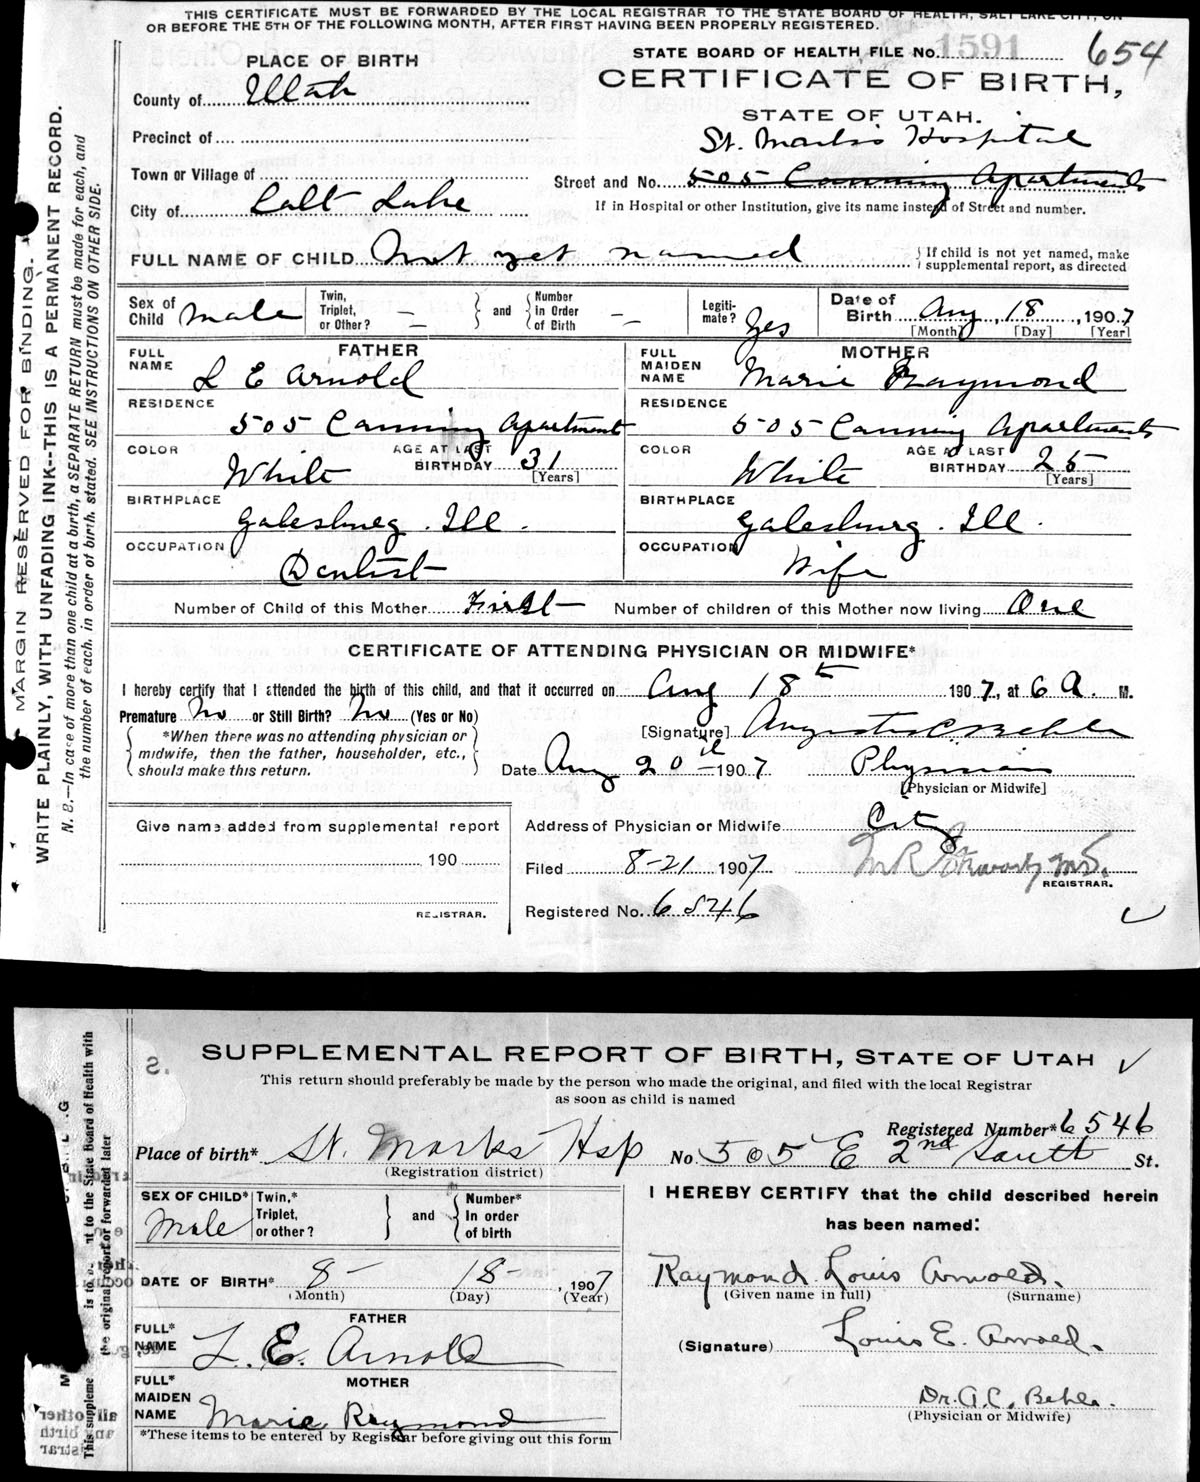 THIS CERTIFICATE MUST BE FORWARDED BY THE LOCAL REGISTRAR TO THE STATE BOARD OF HEALTH, SALT LAKE CITY, ON
OR BEFORE THE 5TH OF THE FOLLOWING MONTH, AFTER FIRST HAVING BEEN PROPERLY REGISTERED.
STATE BOARD OF HEALTH FILE No. 1591 654
PLACE OF BIRTH
CERTIFICATE OF BIRTH,
County of Utah
STATE OF UTAH.
Precinct of
St. Mark's Hospital
Town or Village of
Street and No. 505 Canning Apartments
City of Salt Lake
If in Hospital or other Institution, give its name instead of Street and number.
FULL NAME OF CHILD Not yet named
If child is not yet named, make
supplemental report, as directed
Sex of Child Male
Twin, Triplet, or Other? — and Number in Order of Birth —
Legiti-mate? Yes
Date of Birth Aug 18, 1907
[Month] [Day] [Year]
FATHER
FULL NAME L E Arnold
RESIDENCE
505 Canning Apartment
COLOR White AGE AT LAST BIRTHDAY 31 [Years]
BIRTHPLACE
Galesburg. Ill.
OCCUPATION
Dentist
MOTHER
FULL MAIDEN NAME Marie Raymond
RESIDENCE
505 Canning Apartments
COLOR White AGE AT LAST BIRTHDAY 25 [Years]
BIRTHPLACE
Galesburg. Ill.
OCCUPATION
Wife
Number of Child of this Mother First Number of children of this Mother now living One
CERTIFICATE OF ATTENDING PHYSICIAN OR MIDWIFE*
I hereby certify that I attended the birth of this child, and that it occurred on Aug 18th 1907, at 6 A. M.
Premature No or Still Birth? No (Yes or No)
[Signature] Augustus C. Behle
*When there was no attending physician or
midwife, then the father, householder, etc.,
should make this return.
Date Aug 20 1907 Physician
[Physician or Midwife]
Give name added from supplemental report
190
REGISTRAR.
Address of Physician or Midwife City
Filed 8-21 1907
REGISTRAR.
Registered No. 6546
MARGIN RESERVED FOR BINDING.
WRITE PLAINLY, WITH UNFADING INK--THIS IS A PERMANENT RECORD.
N. B.—In case of more than one child at a birth, a SEPARATE RETURN must be made for each, and
the number of each, in order of birth, stated. SEE INSTRUCTIONS ON OTHER SIDE.
SUPPLEMENTAL REPORT OF BIRTH, STATE OF UTAH
This return should preferably be made by the person who made the original, and filed with the local Registrar
as soon as child is named
Registered Number* 6546
Place of birth* St. Marks Hsp No. 505 E 2nd South St.
(Registration district)
SEX OF CHILD* Male
Twin,* Triplet, or other? and Number* In order of birth
DATE OF BIRTH* 8- 18-, 1907
(Month) (Day) (Year)
FATHER
FULL* NAME L. E. Arnold
MOTHER
FULL* MAIDEN NAME Marie Raymond
*These items to be entered by Registrar before giving out this form
I HEREBY CERTIFY that the child described herein
has been named:
Raymond Louis Arnold.
(Given name in full) (Surname)
(Signature) Louis E. Arnold.
Dr. A. C. Behle.
(Physician or Midwife)
the original report or forwarded later